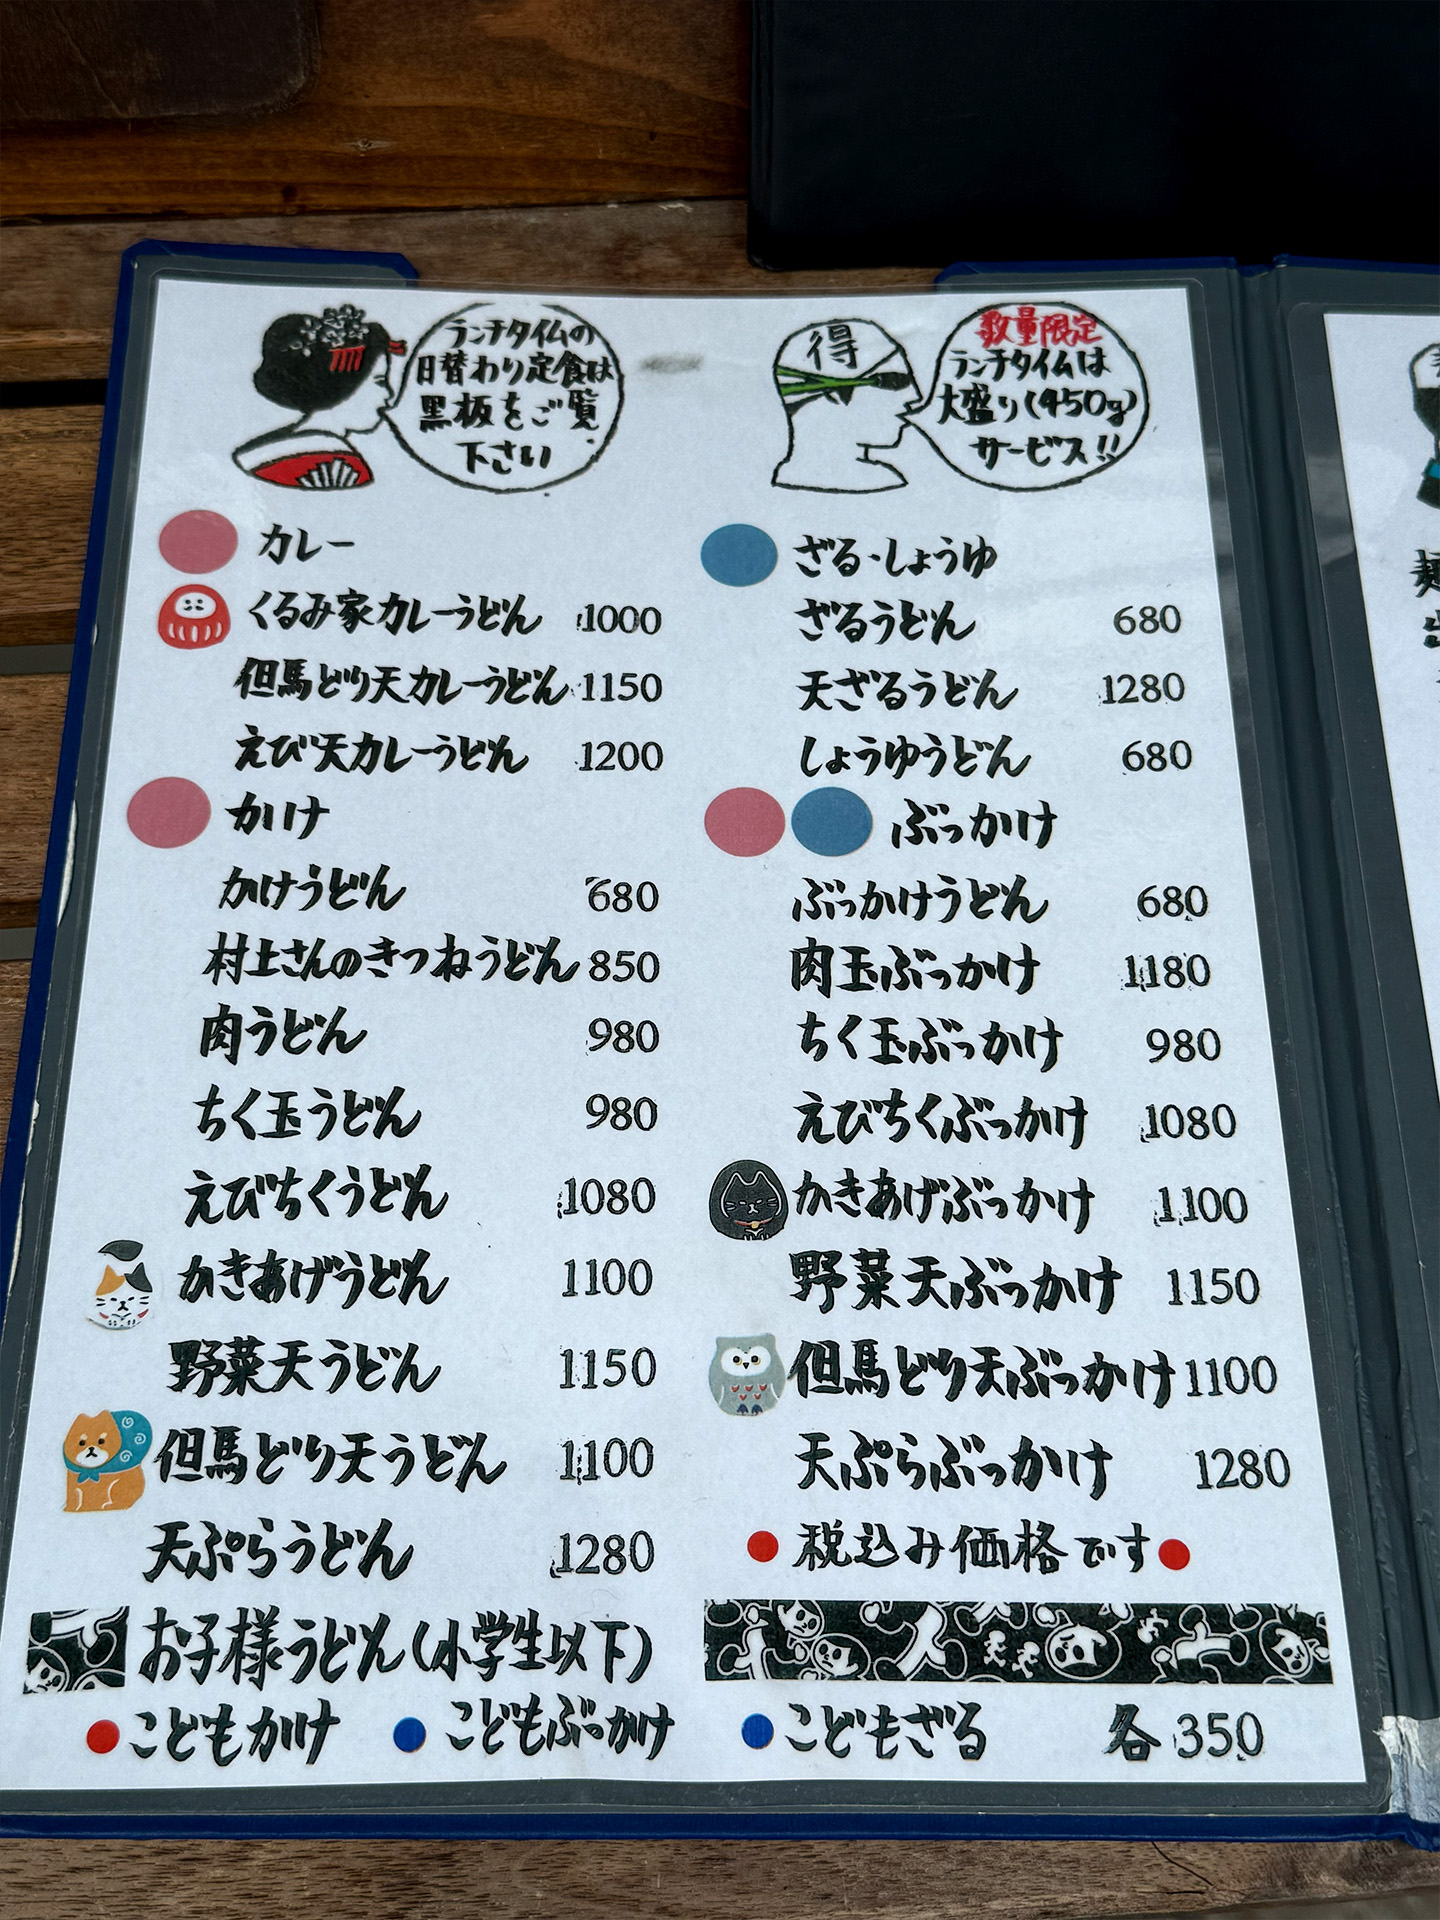 ランチタイムの
日替わり定食は
黒板をご覧
下さい
得
数量限定
ランチタイムは
大盛り(450g)
サービス!!
カレー
くるみ家カレーうどん 1000
但馬どり天カレーうどん 1150
えび天カレーうどん 1200
かけ
かけうどん 680
村上さんのきつねうどん 850
肉うどん 980
ちく玉うどん 980
えびちくうどん 1080
かきあげうどん 1100
野菜天うどん 1150
但馬どり天うどん 1100
天ぷらうどん 1280
ざる・しょうゆ
ざるうどん 680
天ざるうどん 1280
しょうゆうどん 680
ぶっかけ
ぶっかけうどん 680
肉玉ぶっかけ 1180
ちく玉ぶっかけ 980
えびちくぶっかけ 1080
かきあげぶっかけ 1100
野菜天ぶっかけ 1150
但馬どり天ぶっかけ 1100
天ぷらぶっかけ 1280
税込み価格です
お子様うどん(小学生以下)
こどもかけ こどもぶっかけ こどもざる 各350